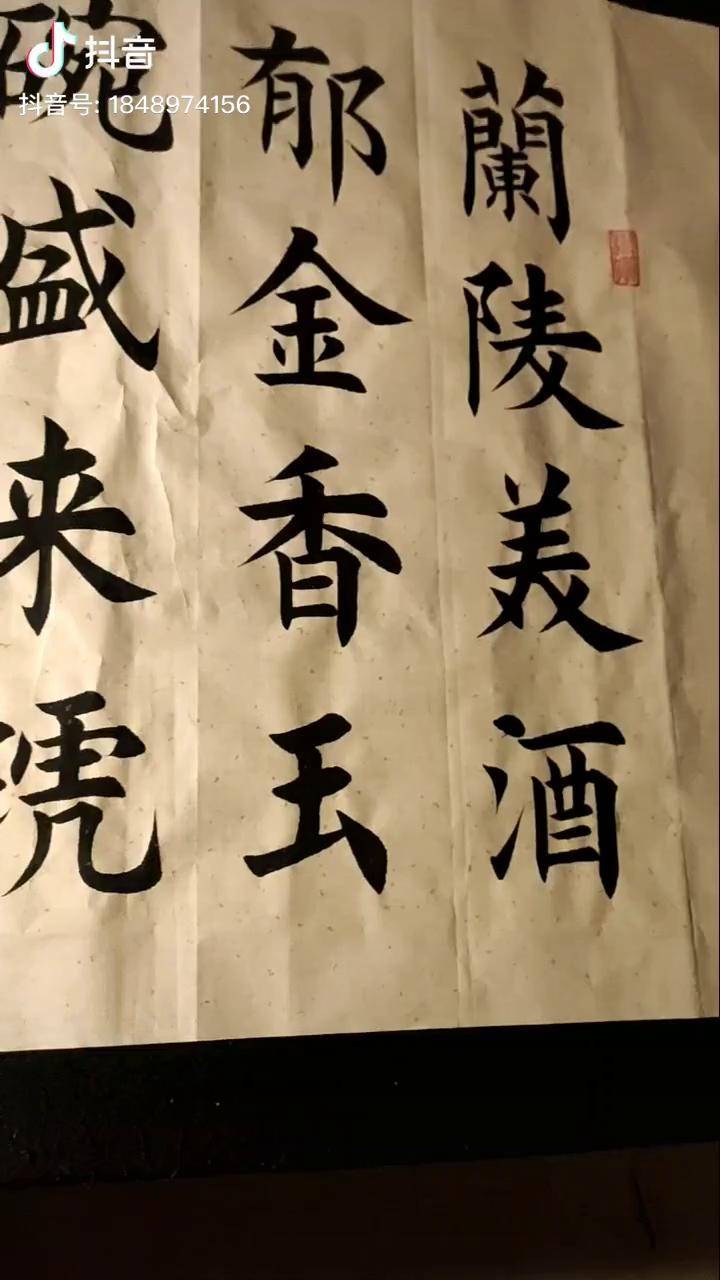 抖音
抖音号: 1848974156
蘭陵美酒
郁金香玉
碗盛来琥